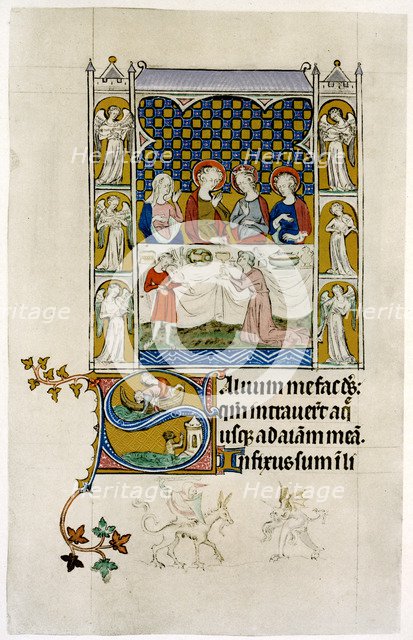 Heritage Heritage
Heritage Heritage
Heritage Heritage
Saluum me fac ds:
qm intrauert aq̄
usq; ad aīam meā.
Infixus sum i li
Heritage Heritage